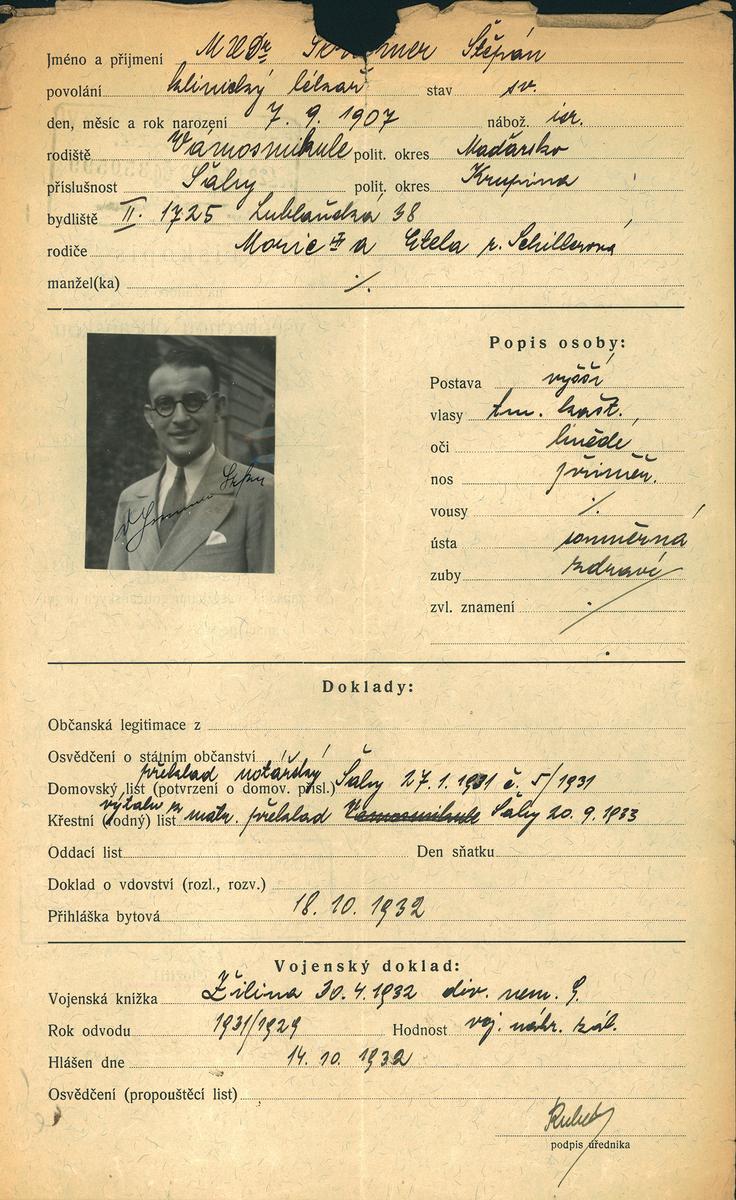 Jméno a příjmení MUDr Štěpán
povolání klinický lékař stav sv.
den, měsíc a rok narození 7. 9. 1907 nábož. isr.
rodiště Vamosmikule polit. okres Maďarsko
příslušnost Šahy polit. okres Krupina
bydliště II. 1725 Lublaňská 38
rodiče Moric a Etela r. Schillerová
manžel(ka) ./.
Popis osoby:
Postava vyšší
vlasy tm. kašt.
oči hnědé
nos přiměř.
vousy ./.
ústa souměrná
zuby zdravé
zvl. znamení
Doklady:
Občanská legitimace z
Osvědčení o státním občanství
překlad notářský
Domovský list (potvrzení o domov. přísl.) Šahy 27. 1. 1931 č. 5/1931
výtah z
Křestní (rodný) list matr. překlad Vamosmikule Šahy 20. 9. 1933
Oddací list Den sňatku
Doklad o vdovství (rozl., rozv.)
Přihláška bytová 18. 10. 1932
Vojenský doklad:
Vojenská knížka Žilina 30. 4. 1932 div. nem. 9.
Rok odvodu 1931/1929 Hodnost voj. náhr. zál.
Hlášen dne 14. 10. 1932
Osvědčení (propouštěcí list)
podpis úředníka